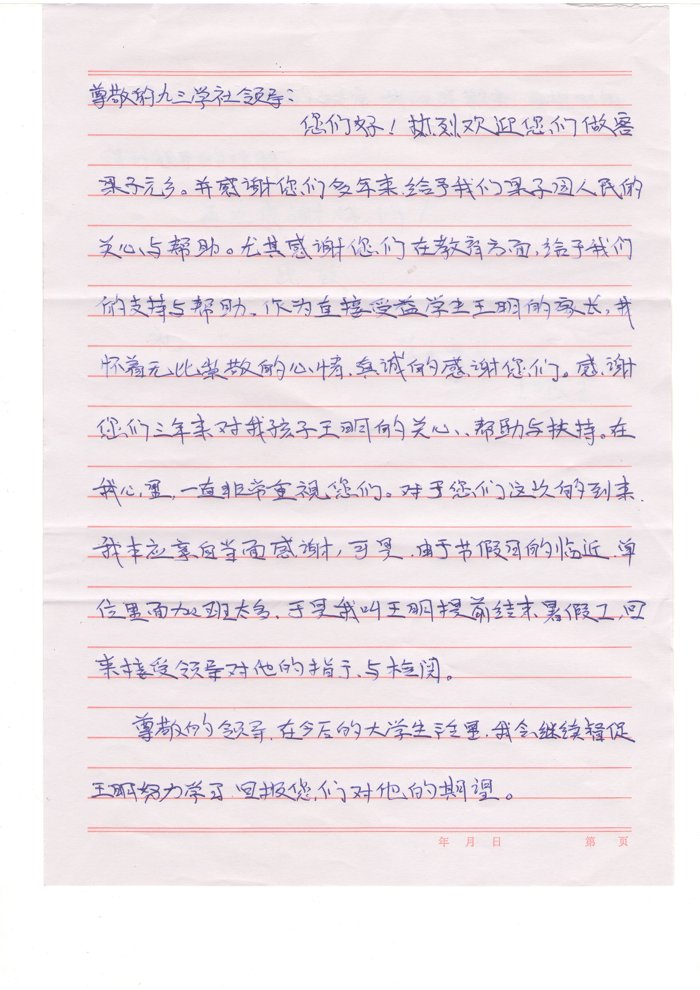 尊敬的九三学社领导：
您们好！热烈欢迎您们做客
梁子元乡。并感谢您们多年来给予我们梁子园人民的
关心与帮助。尤其感谢您们在教育方面，给予我们
的支持与帮助。作为直接受益学生王明的家长，我
怀着无比崇敬的心情，真诚的感谢您们。感谢
您们三年来对我孩子王明的关心、帮助与扶持。在
我心里，一直非常重视您们。对于您们这次的到来，
我本应亲自当面感谢，可是，由于节假日的临近，单
位里面加班太多，于是我叫王明提前结束暑假工，回
来接受领导对他的指示与检阅。
尊敬的领导，在今后的大学生活里，我会继续督促
王明努力学习，回报您们对他的期望。
年 月 日 第 页